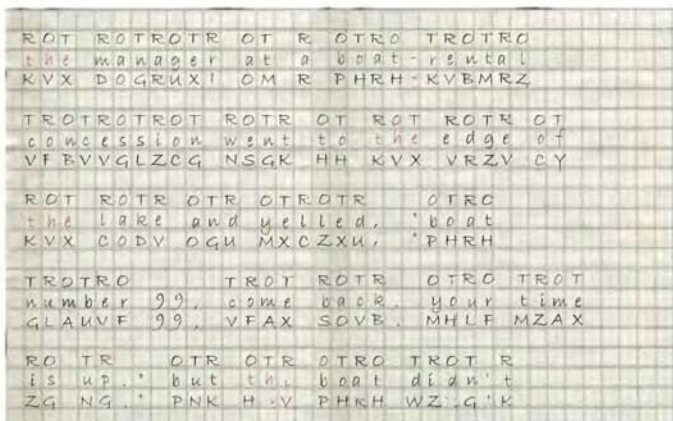 ROT ROTROTR OT R OTRO TROTRO
the manager at a boat-rental
KVX DOGRUXI OM R PHRH-KVBMRZ
TROTROTROT ROTR OT ROT ROTR OT
concession went to the edge of
VFBVVGLZCG NSGK HH KVX VRZV CY
ROT ROTR OTR OTROTR OTRO
the lake and yelled, "boat
KVX CODV OGU MXCZXU, "PHRH
TROTRO TROT ROTR OTRO TROT
number 99, come back. your time
GLAUVF 99, VFAX SOVB. MHLF MZAX
RO TR OTR OTR OTRO TROT R
is up." but the boat didn't
ZG NG." PNK PHRH